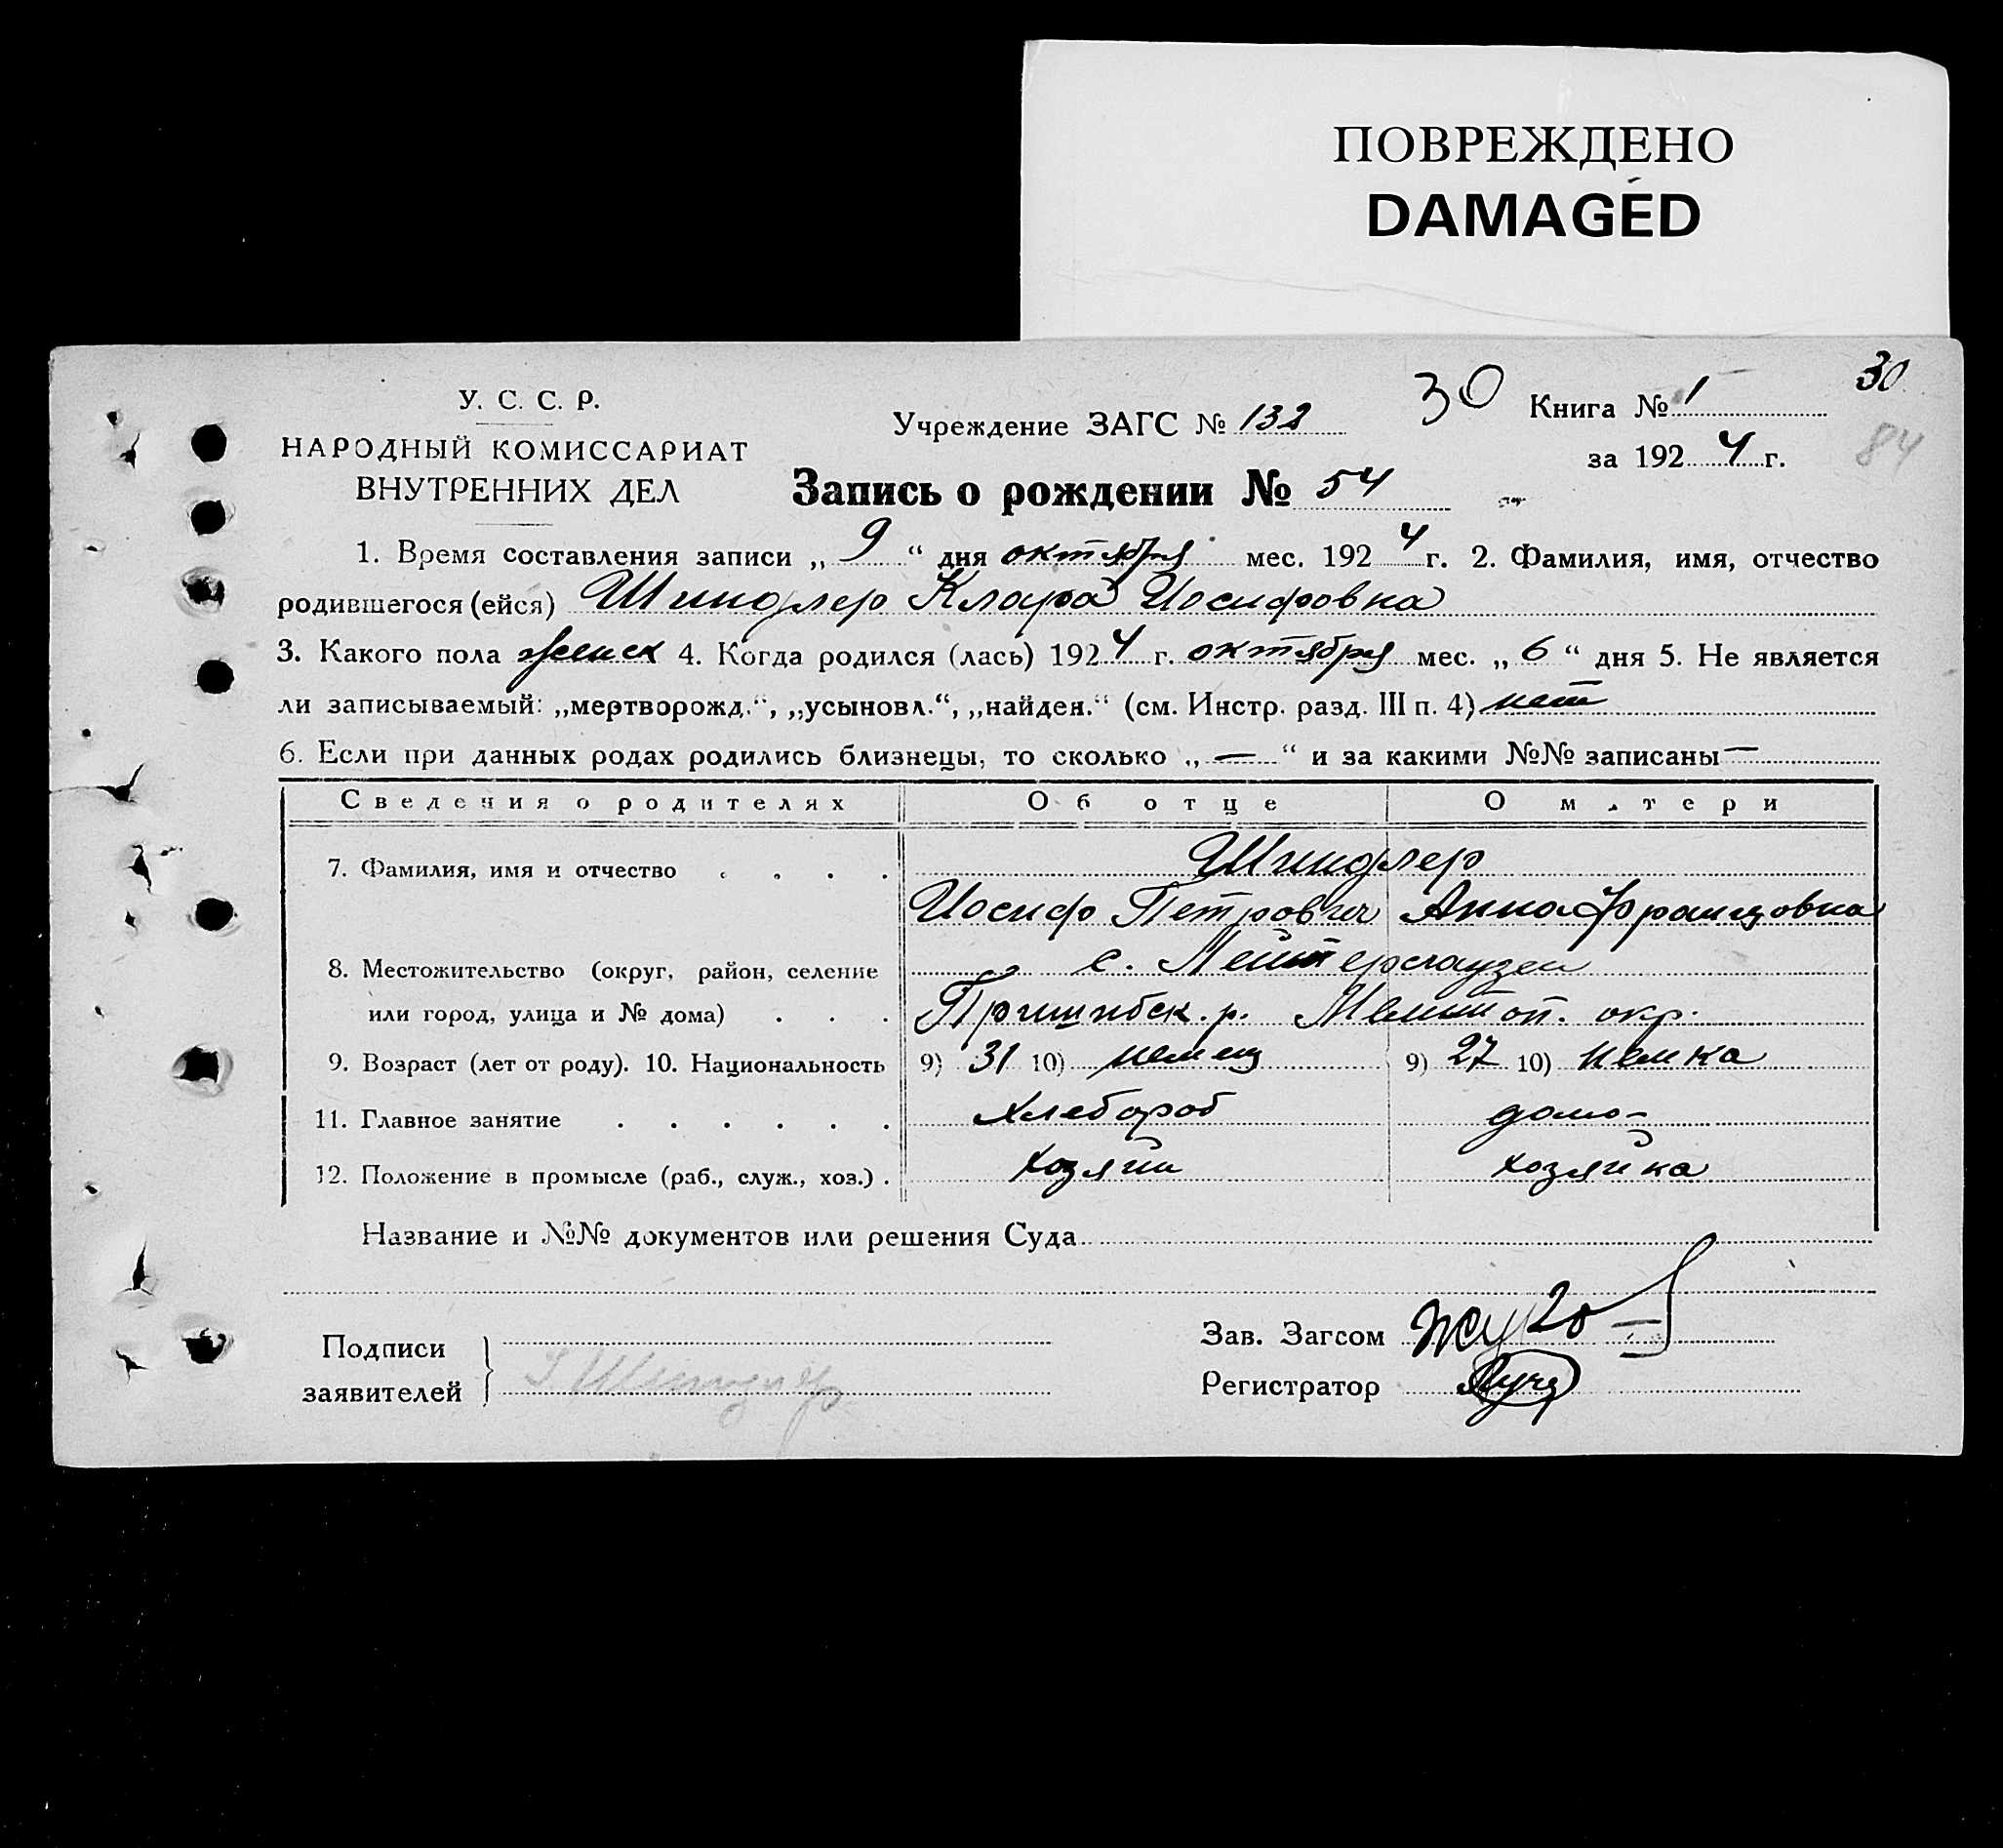 ПОВРЕЖДЕНО
DAMAGED
30
У. С. С. Р.
НАРОДНЫЙ КОМИССАРИАТ
ВНУТРЕННИХ ДЕЛ
Учреждение ЗАГС № 132
30
Книга № 1
за 1924 г.
84
Запись о рождении № 54
1. Время составления записи „ 9 “ дня октября мес. 1924 г. 2. Фамилия, имя, отчество
родившегося (ейся) Шиндлер Клара Иосифовна
3. Какого пола женск 4. Когда родился (лась) 1924 г. октября мес. „ 6 “ дня 5. Не является
ли записываемый: „мертворожд.“, „усыновл.“, „найден.“ (см. Инстр. разд. III п. 4) нет
6. Если при данных родах родились близнецы, то сколько „ — “ и за какими №№ записаны —
Сведения о родителях Об отце О матери
7. Фамилия, имя и отчество . . . . Шиндлер
Иосиф Петрович Анна Францовна
8. Местожительство (округ, район, селение с. Лейтерсгаузен
или город, улица и № дома) . . . Пришибск. р. Мелитоп. окр.
9. Возраст (лет от роду). 10. Национальность 9) 31 10) немец 9) 27 10) немка
11. Главное занятие . . . . . . хлебороб домо-
12. Положение в промысле (раб., служ., хоз.) . хозяин хозяйка
Название и №№ документов или решения Суда
Подписи
заявителей
Шиндлер
Зав. Загсом
Регистратор